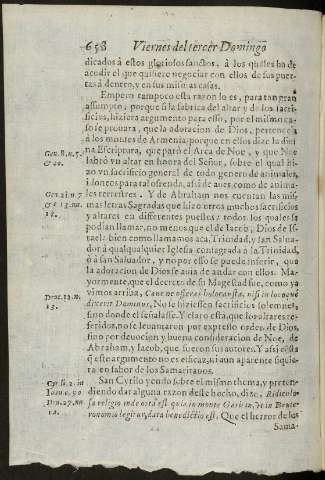 658 Viernes del tercer Domingo
dicados à estos gloriosos sanctos, à los quales ha de
acudir el que quisiere negociar con ellos de sus puer-
tas à dentro, y en sus mismas casas.
Empero tampoco esta razon lo es, para tan gran
assumpto, porque si la fabrica del altar y de los sacri-
ficios, hiziera argumento para esso, por el mismo ca-
so se prouara, que la adoracion de Dios, pertenecia
a los montes de Armenia, porque en ellos dize la diui-
na Escriptura, que parò el Arca de Noe, y que Noe
labrò vn altar en honra del Señor, sobre el qual hi-
zo vn sacrificio general de todo genero de animales,
idoneos para tal ofrenda, assi de aues como de anima-
les terrestres. Y de Abraham nos cuentan las mis-
mas letras Sagradas que hizo otros muchos sacrificios
y altares en differentes puestos: todos los quales sa
podian llamar, no menos que el de Iacob, Dios de Is-
rael: bien como llamamos acà, Trinidad, y san Salua-
dor à qualquier Iglesia consagrada a la Trinidad,
ò a san Saluador, y no por esso se puede inferir, que
la adoracion de Dios se auia de andar con ellos. Ma-
yormente, que el decreto de su Magestad fue, como ya
vimos arriba, Caue ne offeras holocausta, nisi in loco quẽ
elegerit Dominus, No se hiziessen sacrificios solemnes,
sino donde el señalasse. Y claro està, que los altares re-
feridos, no se leuantaron por expresso orden de Dios,
sino por deuocion y buena consideracion de Noe, de
Abraham, y Iacob, que fueron sus autores. Y assi cõsta
q̃ este argumento no es efficaz, ni aun aparente siquie-
ra en fabor de los Samaritanos.
San Cyrilo yendo sobre el mismo thema, y preten-
diendo dar alguna razon deste hecho, dize, Ridiculo-
sa religio inde orta est quia in monte Garizin, vt in Deute-
ronomio legitur, data benedictio est: Que el herror de los
Sama-
Gen. 8. n. 5.
& 20.
Gen. 12. n. 7
& 13. nu.
18.
Deut. 12. n.
13.
Cyr. li. 2. in
Ioan. c. 90
Deu. 27. nu.
12.